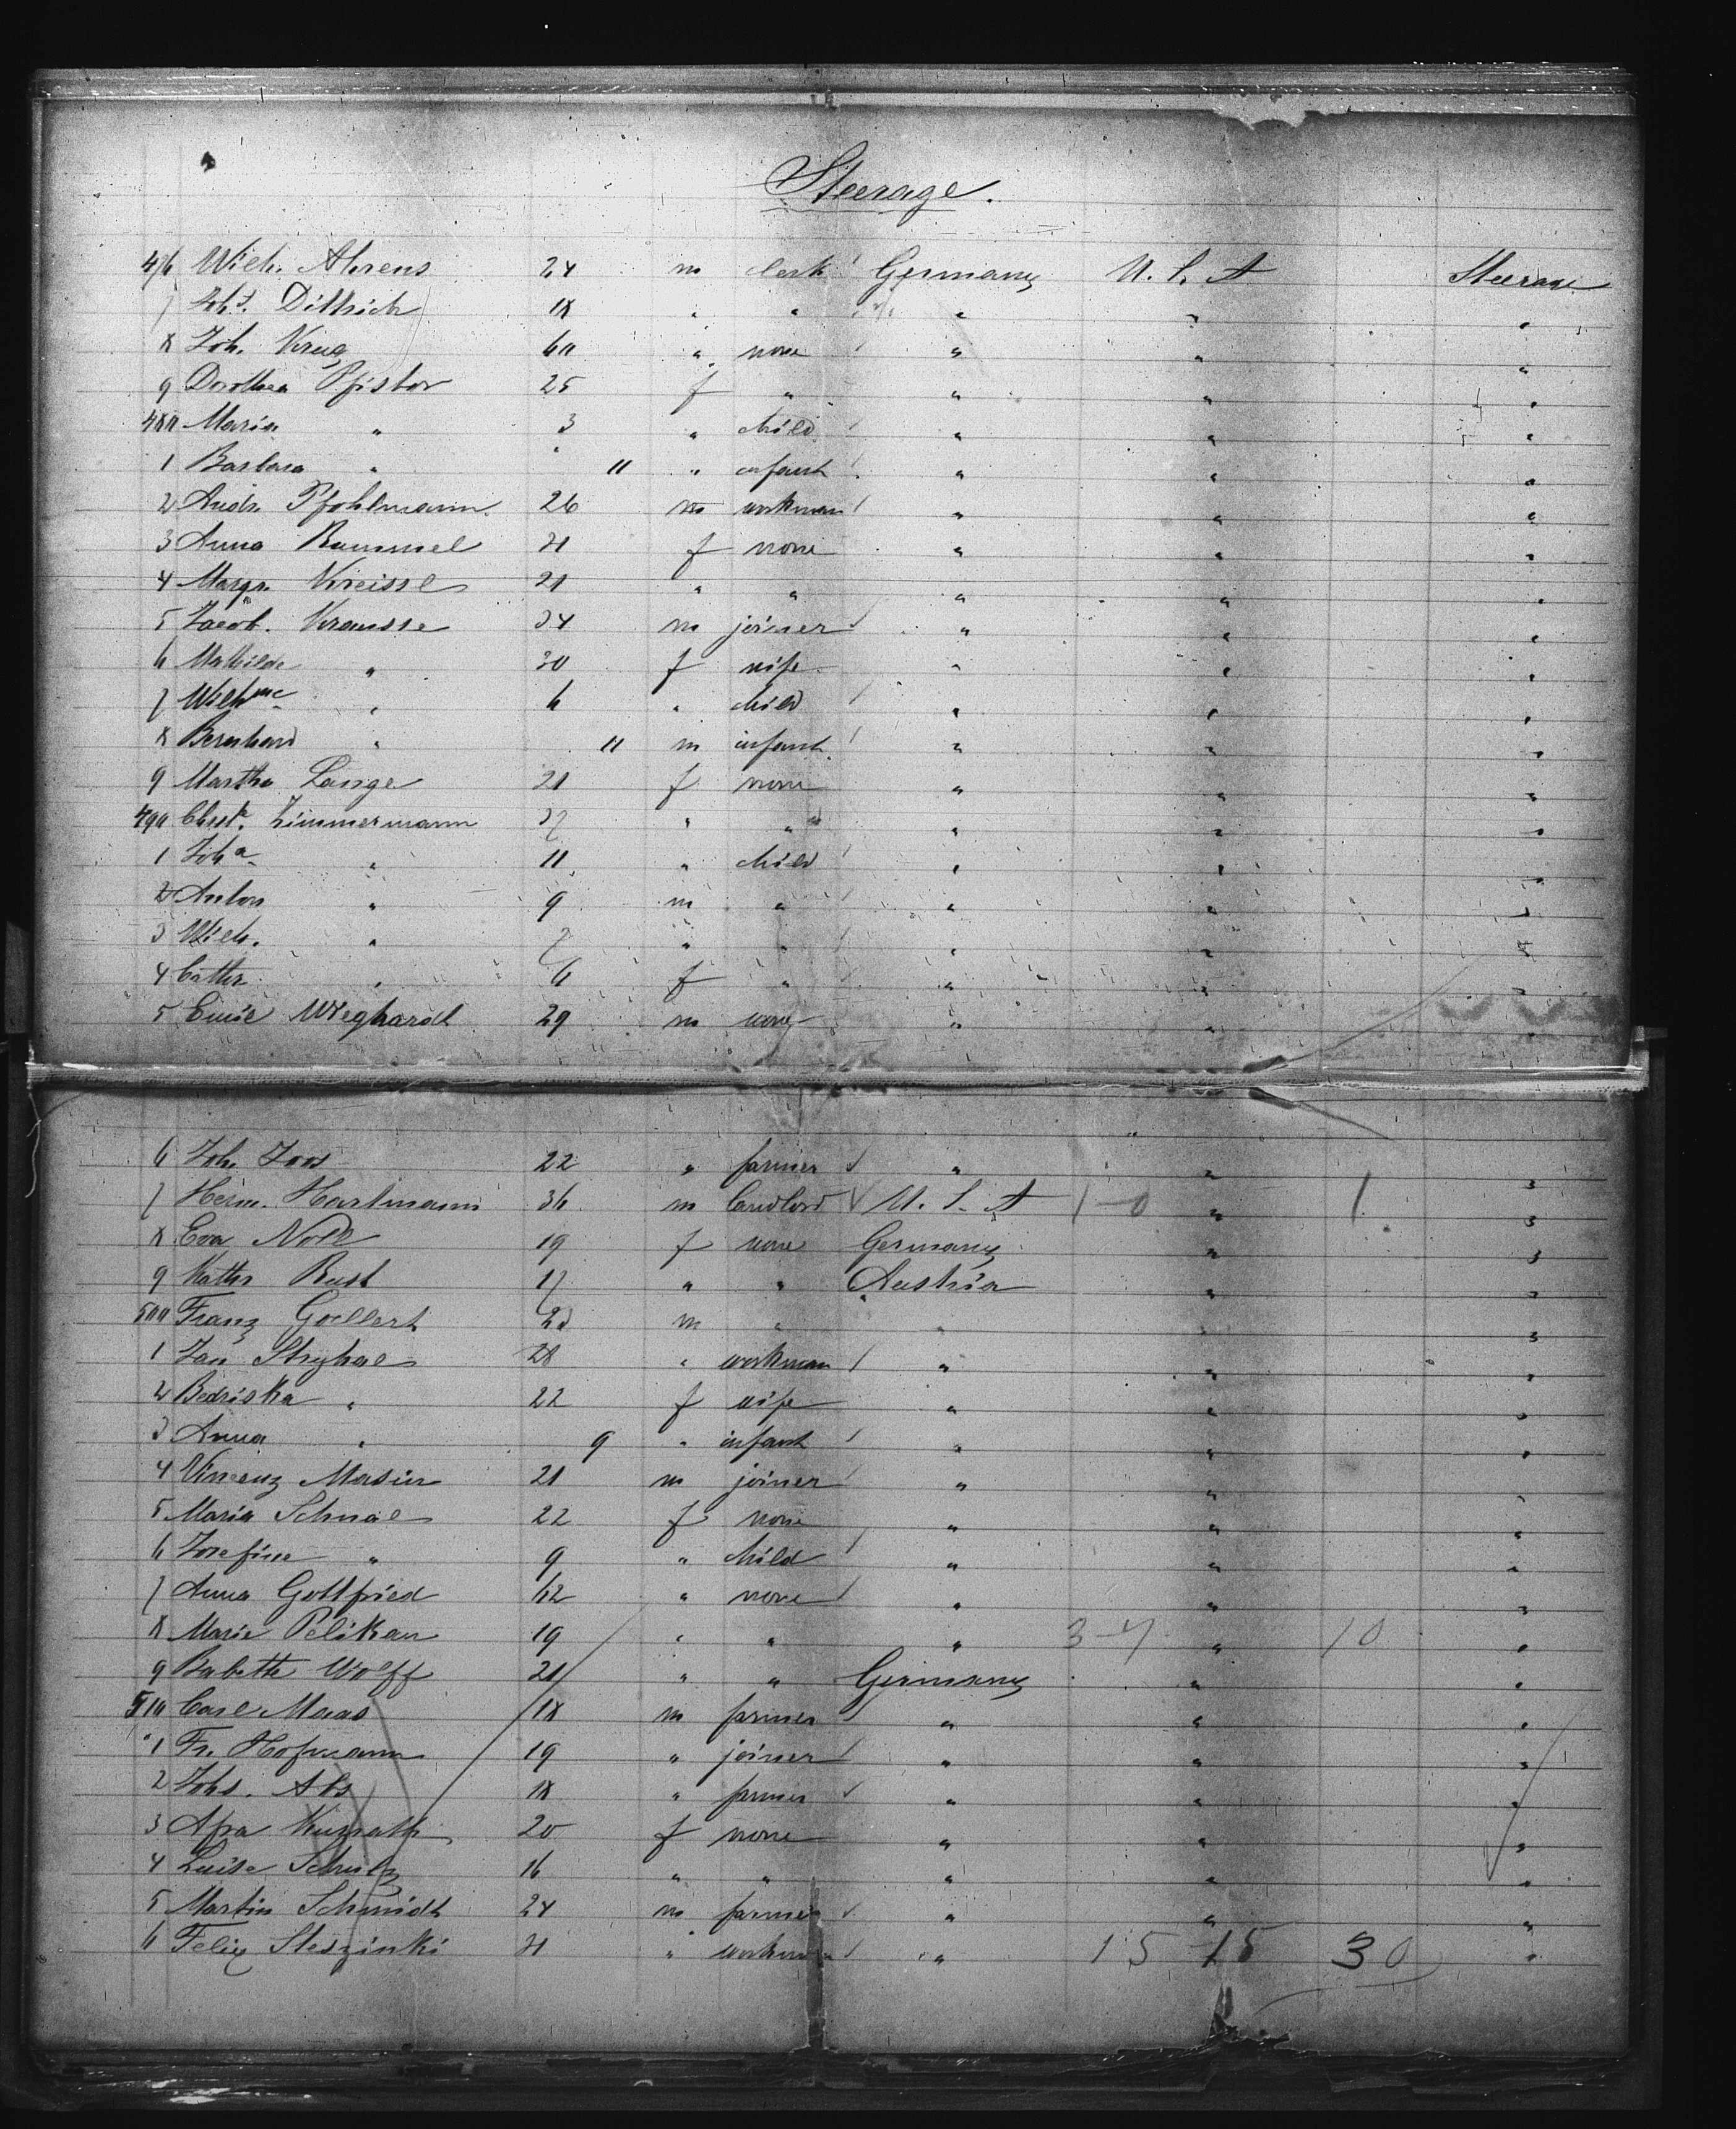 Steerage.
476 Wilh. Ahrens 24 m clerk Germany U. S. A Steerage
7 Joh. Dittrich 18 " " " " "
8 Joh. Krug 60 " none " " "
9 Dorothea Pfistor 25 f " " " "
480 Maria " 3 " child " " "
1 Barbara " " 11 " infant " " "
2 Andr. Pfohlmann 26 m workman " " "
3 Anna Rummel 21 f none " " "
4 Margr. Kreissl 21 " " " " "
5 Jacob. Krausse 34 m joiner " " "
6 Mathilde " 30 f wife " " "
7 Wilhme " 6 " child " " "
8 Bernhard " 11 m infant " " "
9 Martha Lange 21 f none " " "
490 Chrste. Zimmermann 37 " " " " "
1 Joha " 11 " child " " "
2 Anton " 9 m " " " "
3 Wilh. " 7 " " " " "
4 Cathr. " 6 f " " " "
5 Weghardt 29 m " " "
6 Joh. Joos 22 " farmer " " "
7 Herm. Hartmann 36 m Landlord U. S. A 1-0 " 1 "
8 Eva Noll 19 f none Germany " "
9 Kathr Rust 17 " " Austria " "
500 Franz Goellert 23 m " " " "
1 Jan Stryhal 28 " workman " " "
2 Bedriska " 22 f wife " " "
3 Anna " 9 " infant " " "
4 Vincenz Masin 21 m joiner " " "
5 Maria Schnal 22 f none " " "
6 Josefine " 9 " child " " "
7 Anna Gottfried 62 " none " " "
8 Marie Pelikan 19 " " " 3-7 " 10 "
9 Babette Wolff 21 " " Germany " "
510 Carl Maas 18 m farmer " " "
1 Fr. Hofmann 19 " joiner " " "
2 Johs. Abs 18 " farmer " " "
3 Afra 20 f none " " "
4 Luise Schulz 16 " " " " "
5 Martin Schmidt 24 m farmer " " "
6 Felix Steszinki 21 " workman " 15 15 30 "